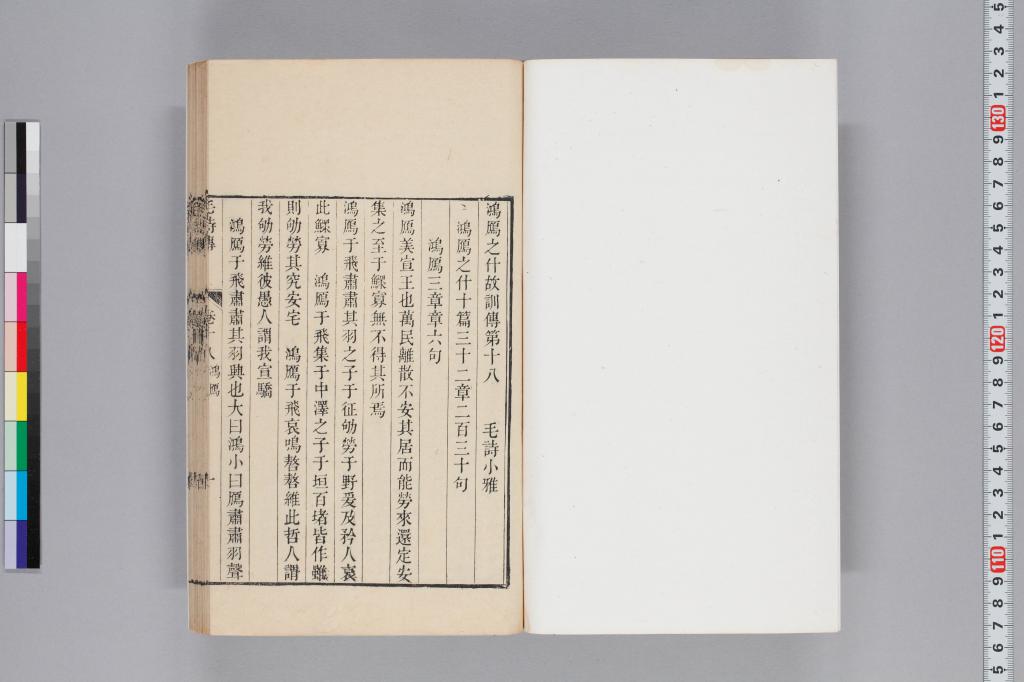 鴻鴈之什故訓傳第十八 毛詩小雅
鴻鴈之什十篇三十二章二百三十句
鴻鴈三章章六句
鴻鴈美宣王也萬民離散不安其居而能勞來還定安
集之至于鰥寡無不得其所焉
鴻鴈于飛肅肅其羽之子于征劬勞于野爰及矜人哀
此鰥寡 鴻鴈于飛集于中澤之子于垣百堵皆作雖
則劬勞其究安宅 鴻鴈于飛哀鳴嗸嗸維此哲人謂
我劬勞維彼愚人謂我宣驕
鴻鴈于飛肅肅其羽興也大曰鴻小曰鴈肅肅羽聲
毛詩傳 卷十八 鴻鴈 一
5 4 3 2 1 130 9 8 7 6 5 4 3 2 1 120 9 8 7 6 5 4 3 2 1 110 9 8 7 6 5